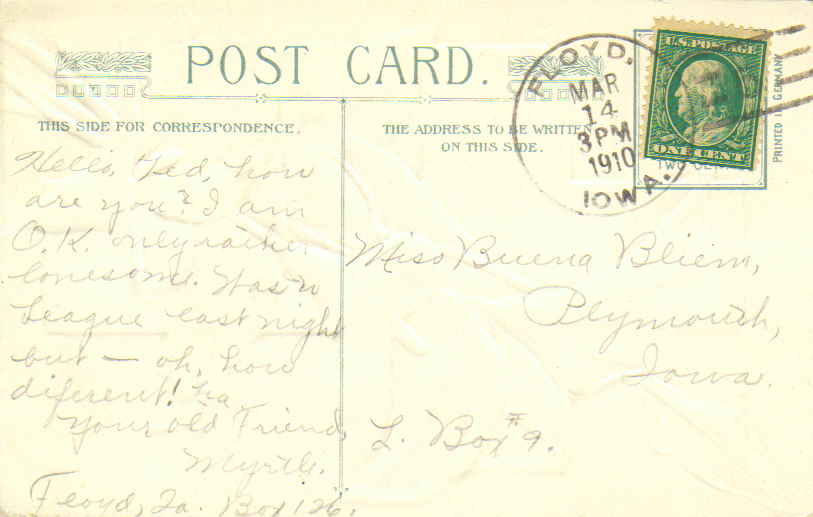 POST CARD.
THIS SIDE FOR CORRESPONDENCE.
THE ADDRESS TO BE WRITTEN
ON THIS SIDE.
FLOYD,
MAR
14
3 PM
1910
IOWA.
U.S. POSTAGE
ONE CENT
TWO CE
PRINTED IN GERMANY
Hello, Ted, how
are you? I am
O.K. only rather
lonesome. Was to
League last night
but — oh, how
diferent! ha
Your old Friend,
Myrtle.
Floyd, Ia. Box 126.
Miss Buena Bliem,
Plymouth,
Iowa.
L. Box #9.